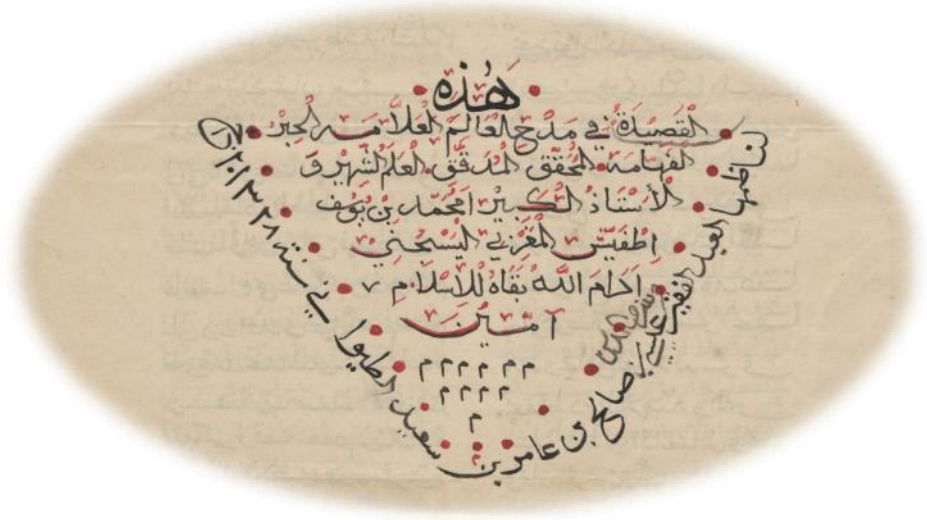 هٰذه
القصيدة في مدح العالم العلامه الحبر
الفهامة المحقق المدقق العلم الشهير و
الأستاذ الكبير امحمد بن يوسف
اطفيش المغربي اليسجني
ادام الله بقاه للاسلام ٧
آمين
م م م م م م
م م م م
م
لناظمها العبد الفقير علي بن صالح بن عامر بن سعيد الطيوا ني سنة ١٣٢٨